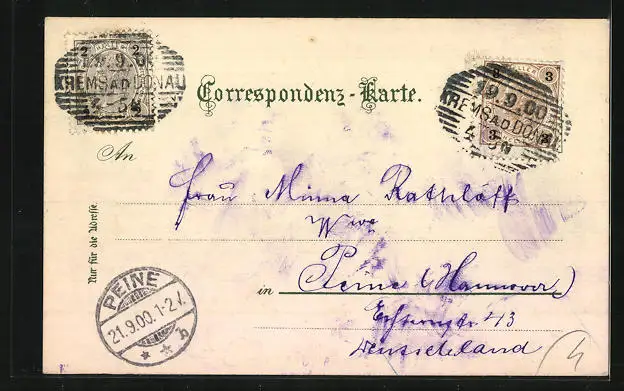 2 2
19.9.00
KREMS A.D. DONAU
4-5N
3 HELLER 3
19.9.00
KREMS A.D. DONAU
4-5N
3
Correspondenz-Karte.
An
Frau Minna Rathlöff
Wwe
in Peine (Hannover)
43
Deutschland
Nur für die Adresse.
PEINE
21.9.00.1-2
b
4